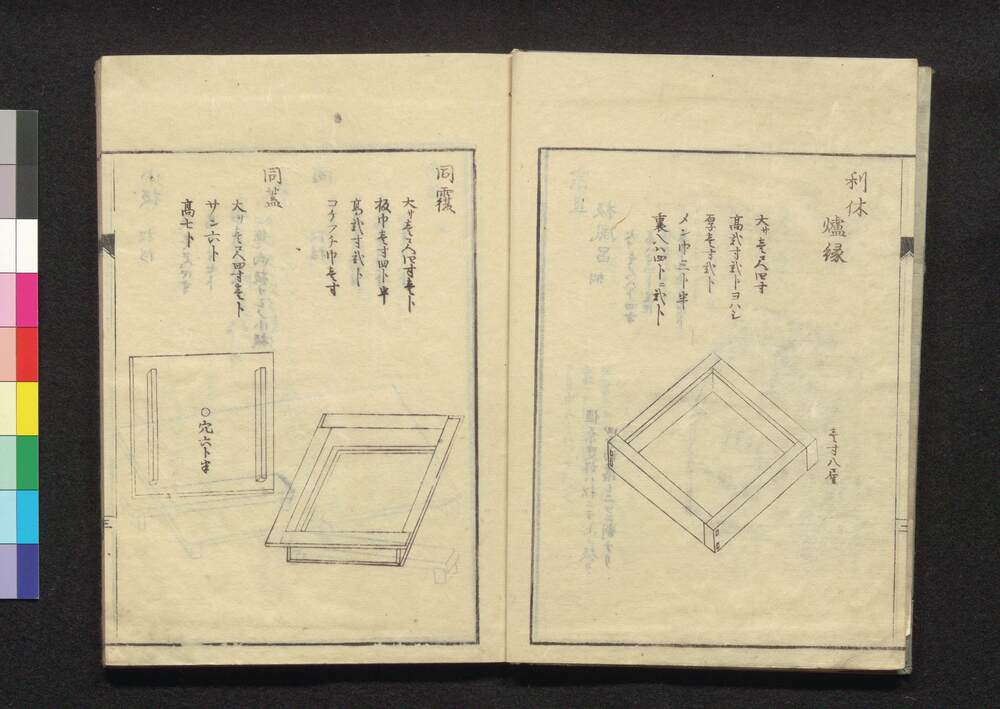 利休
爐縁
大サ壱尺四寸
高弐寸弐トヨハシ
厚壱寸弐ト
メン巾三ト半
裏へハ四トニ弐ト
壱寸八
二
同覆
大サ壱尺四寸壱ト
板巾壱寸四ト半
高弐寸弐ト
コクフチ巾壱寸
同蓋
大サ壱尺四寸壱ト
サン六ト
高七ト
○穴六ト半
三